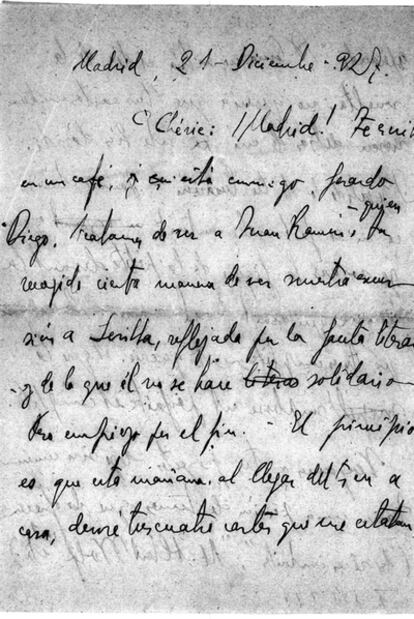 Madrid, 21 - Diciembre - 927.
Chérie: ¡Madrid! Te escrib
en un café, y está conmigo Gerardo
Diego. Tratamos de ver a Juan Ramón, quien ha
recogido cierta manera de ver nuestra excur
sión a Sevilla, reflejada por la Gaceta Literar
y de lo que él no se hace solidario
Pero empiezo por el fin. - El principio
es, que esta mañana, al llegar del tren a
casa, devoré tres cuatro cartas que me estaban